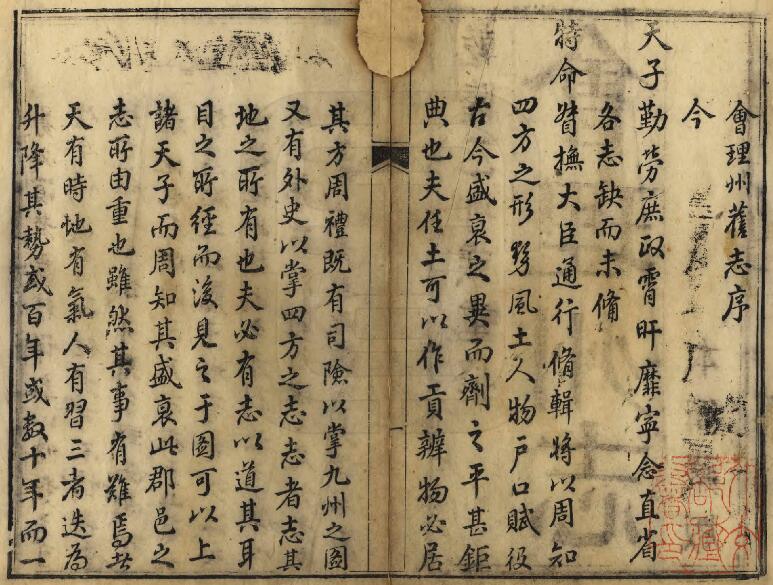 會理州舊志序
今
天子勤勞庶政宵旰靡寧念直省
各志缺而未脩
特命督撫大臣通行脩輯將以周知
四方之形勢風土人物戶口賦役
古今盛衰之異而劑之平甚鉅
典也夫任土可以作貢辨物必居
其方周禮既有司險以掌九州之圖
又有外史以掌四方之志志者志其
地之所有也夫必有志以道其耳
目之所經而後見之于圖可以上
諸天子而周知其盛衰此郡邑之
志所由重也雖然其事有難焉者
天有時地有氣人有習三者迭為
升降其勢或百年或數十年而一